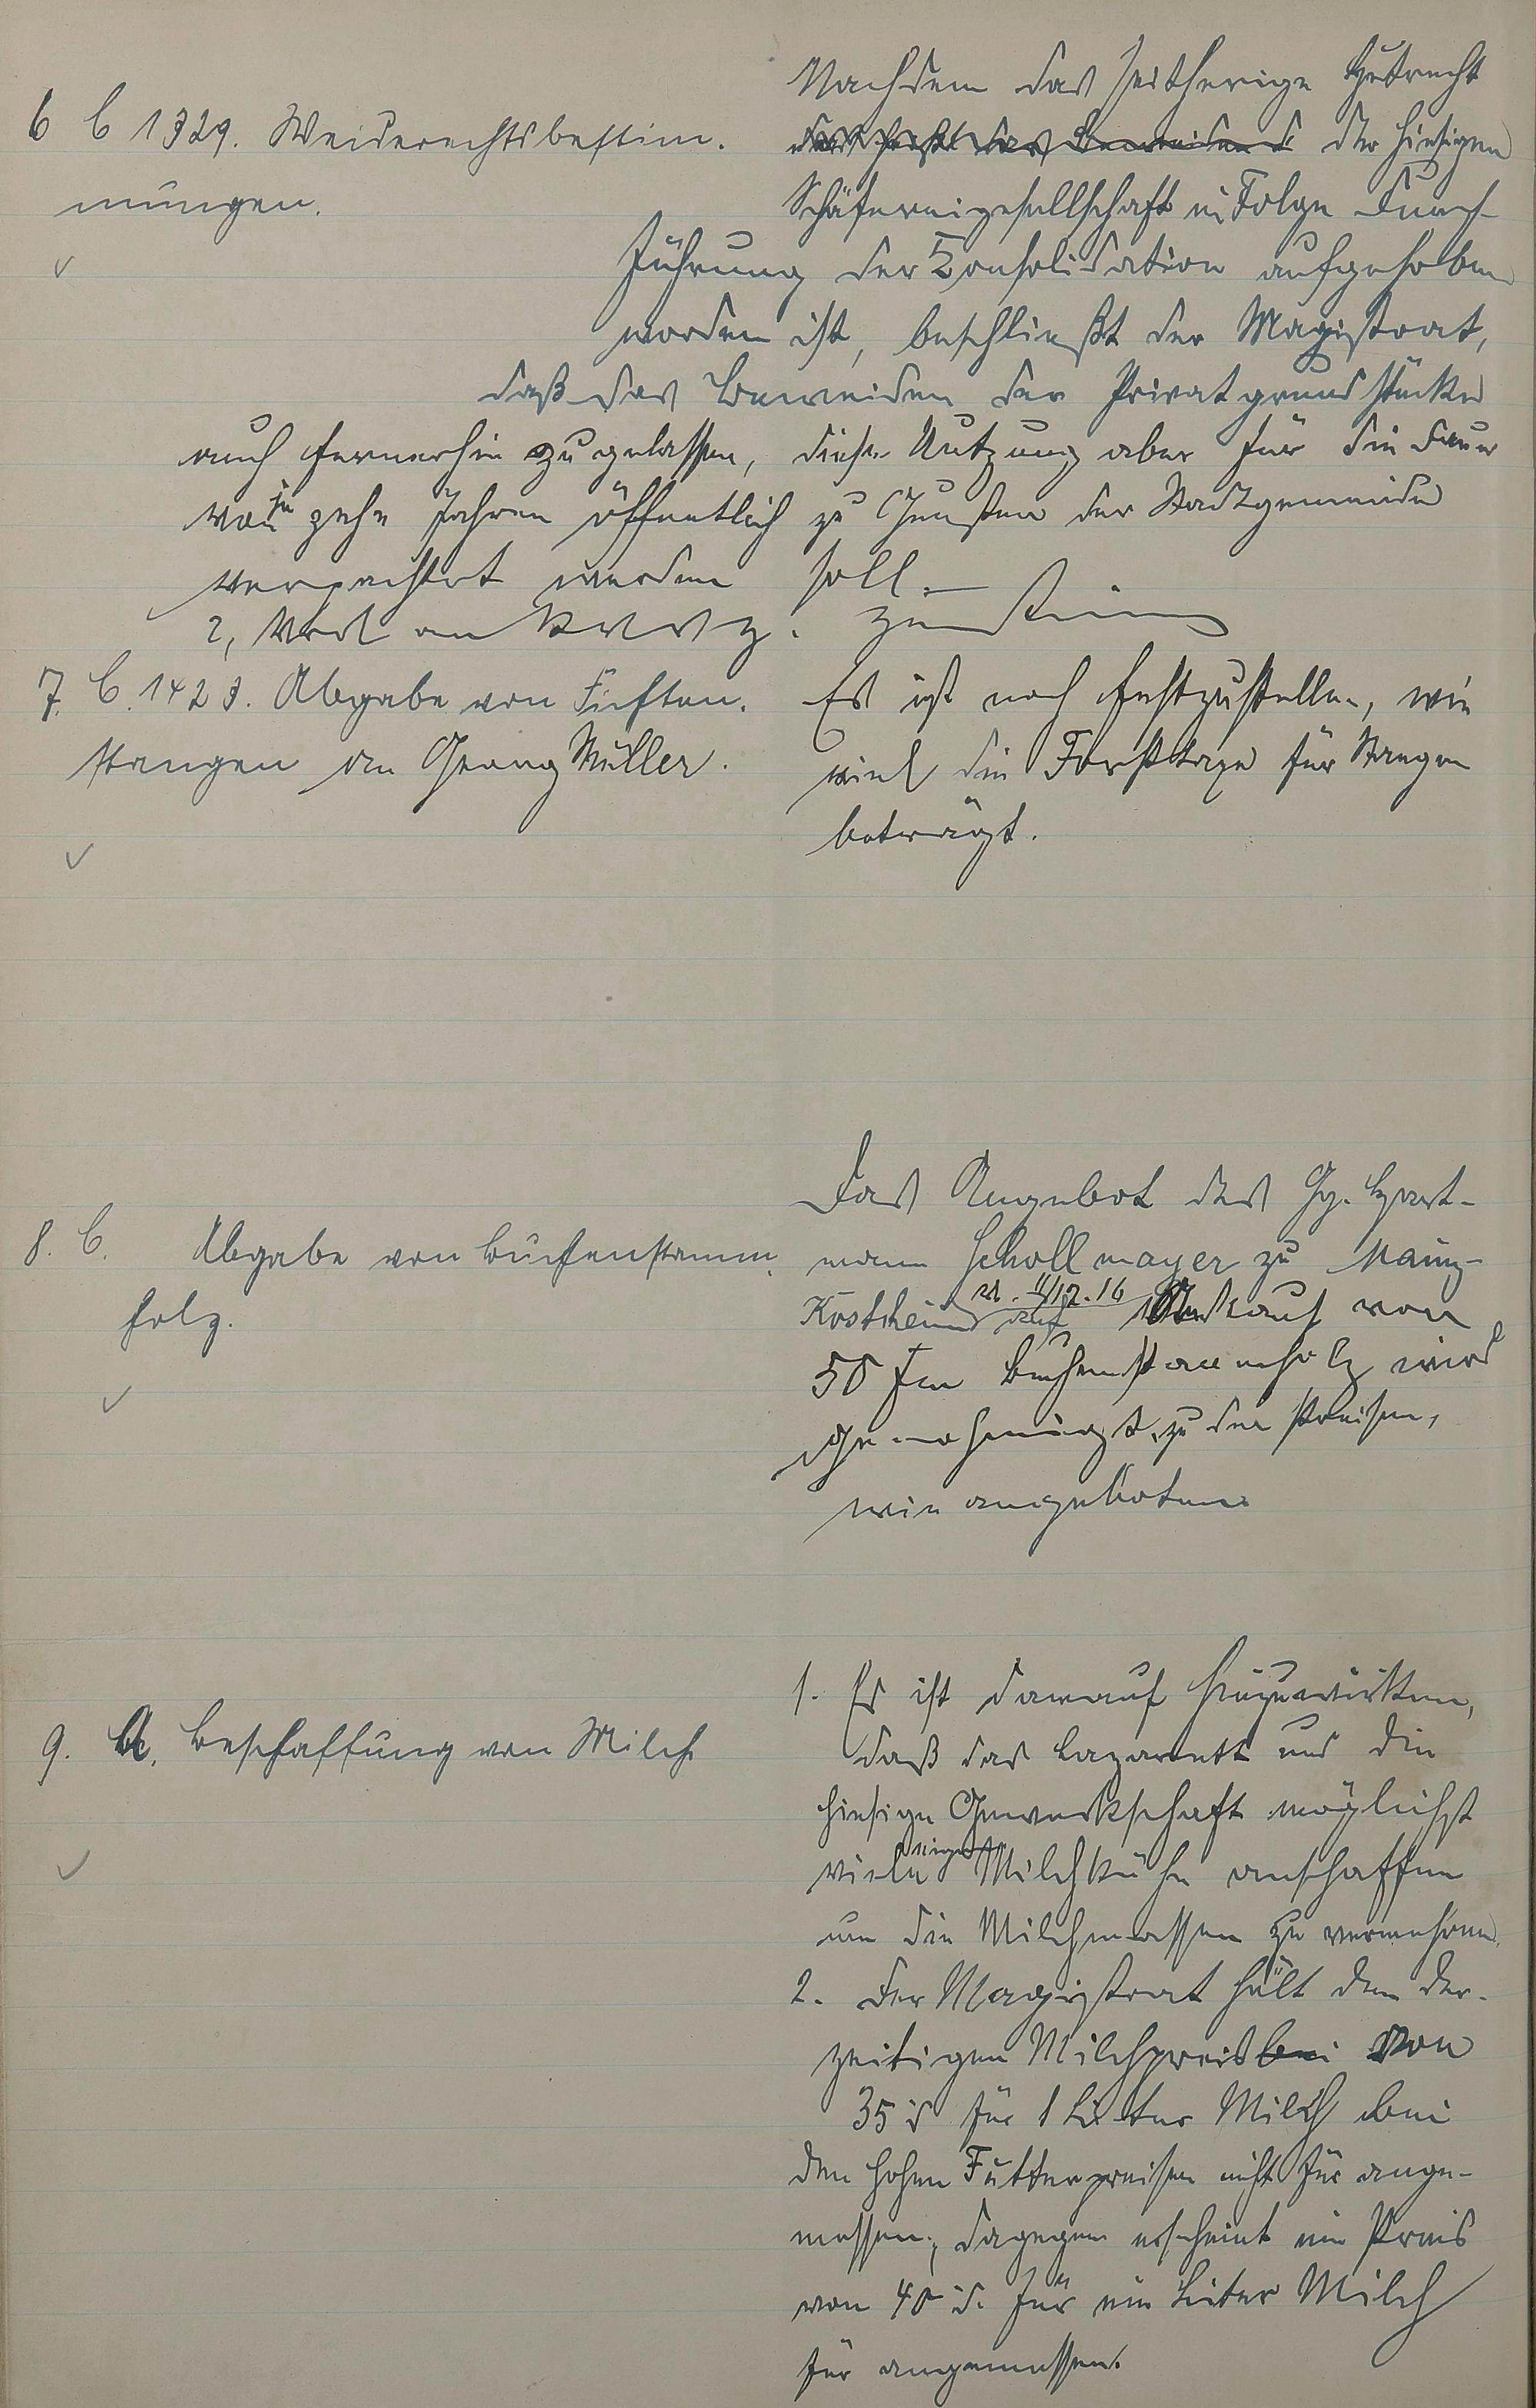 6 C 1329. Weiderechtsbestim-
mungen.
Nachdem das seitherige Hutrecht
der hiesigen
Schäfereigesellschaft in Folge Durch-
führung der Consolidation aufgehoben
worden ist, beschließt der Magistrat,
daß das Beweiden der Privatgrundstücke
auch fernerhin zugelassen, diese Nutzung aber für die Dauer
von je zehn Jahren öffentlich zu Gunsten der Stadtgemeinde
verpachtet werden soll.
2, Vorl. an St V V z. Zustimmung
7. C. 1423. Abgabe von Fichten-
stangen an Georg Müller.
Es ist noch festzustellen, wie
viel die Forsttaxe für Stangen
beträgt.
8. C. Abgabe von Buchenstamm-
holz.
Das Angebot des Hg. Hart-
mann Schollmayer zu Mainz-
Kostheim v. 4/12.16 auf Ankauf von
50 Fm Buchenstammholz wird
genehmigt, zu den Preisen,
wie angeboten.
9. A. Beschaffung von Milch
1. Es ist darauf hinzuwirken,
daß das Lazarett und die
hiesige Gewerkschaft möglichst
viele Milchkühe anschaffen
um die Milchmassen zu vermehren.
2. Der Magistrat hält den der-
zeitigen Milchpreis bei von
35 d für 1 Liter Milch bei
den hohen Futterpreisen nicht für ange-
messen; dagegen erscheint ein Preis
von 40 d. für ein Liter Milch
für angemessen.